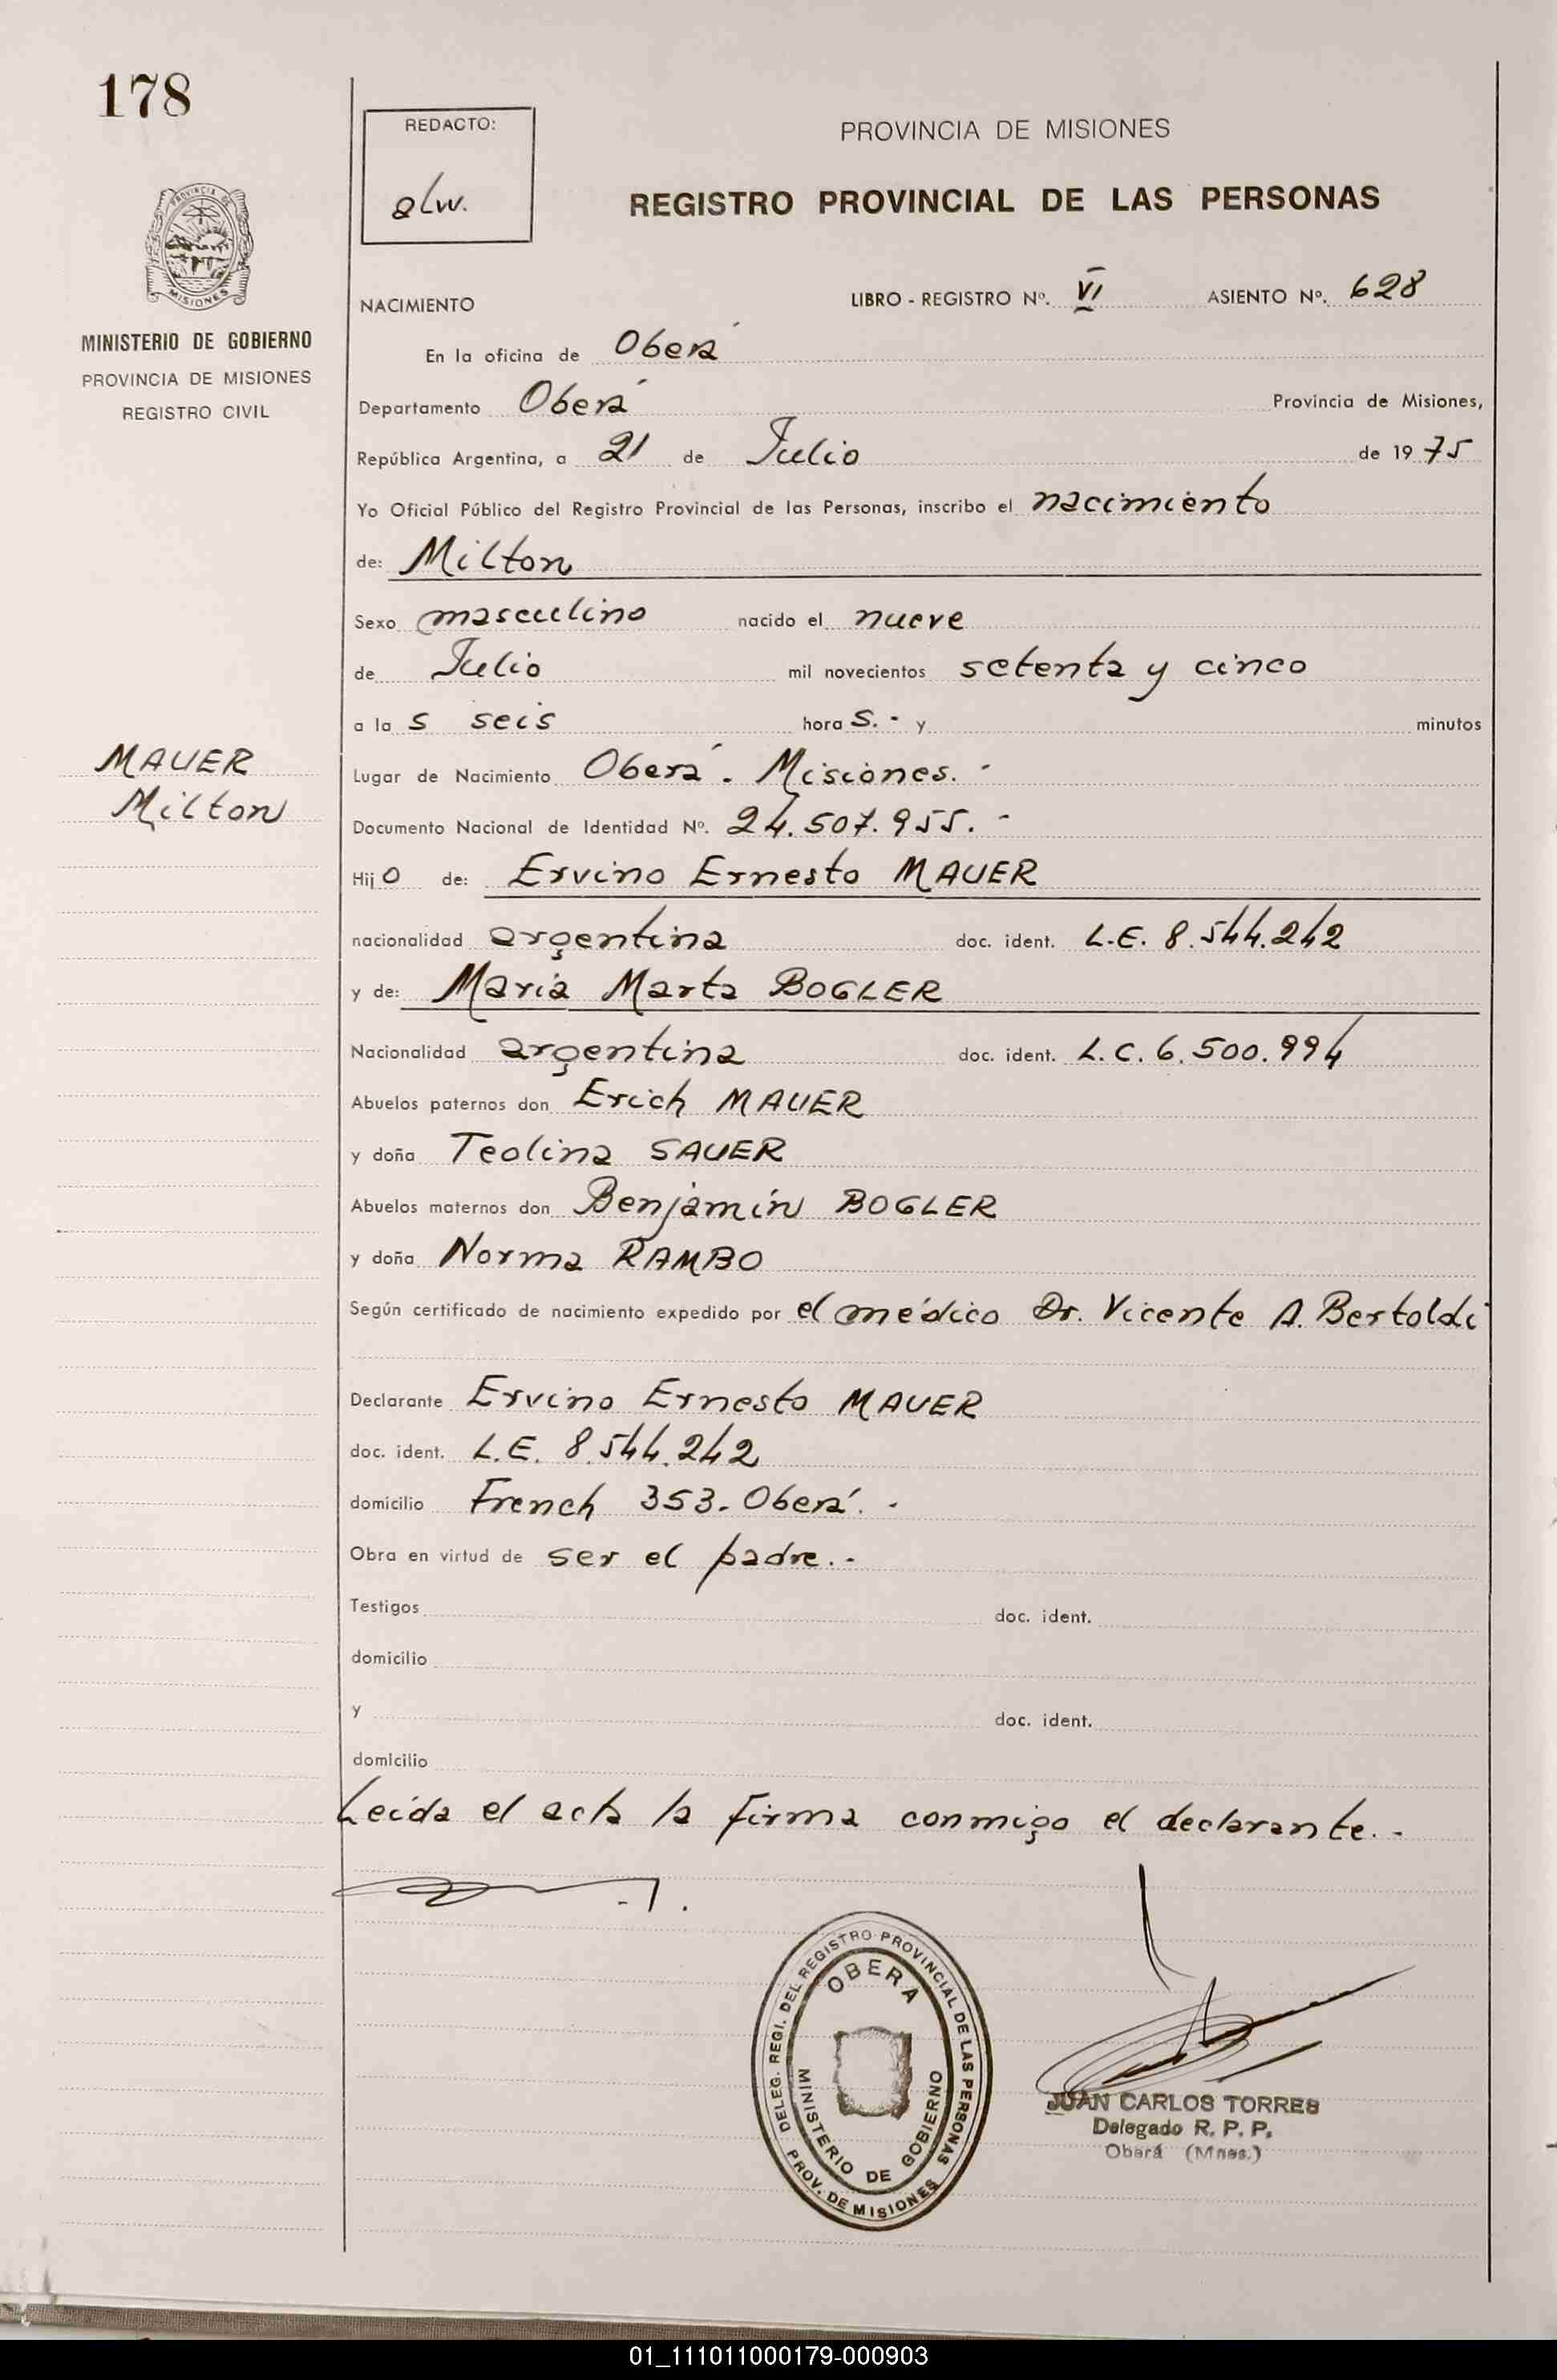 178
REDACTO:
alw.
PROVINCIA DE MISIONES
REGISTRO PROVINCIAL DE LAS PERSONAS
PROVINCIA DE
MISIONES
MINISTERIO DE GOBIERNO
PROVINCIA DE MISIONES
REGISTRO CIVIL
NACIMIENTO LIBRO - REGISTRO Nº. VI ASIENTO Nº. 628
En la oficina de Oberá
Departamento Oberá Provincia de Misiones,
República Argentina, a 21 de Julio de 1975
Yo Oficial Público del Registro Provincial de las Personas, inscribo el nacimiento
de: Milton
Sexo masculino nacido el nueve
de Julio mil novecientos setenta y cinco
a la s seis hora s.- y minutos
MAUER
Milton
Lugar de Nacimiento Oberá. Misiones.-
Documento Nacional de Identidad Nº. 24.507.955.-
Hijo de: Ervino Ernesto MAUER
nacionalidad argentina doc. ident. L.E. 8.544.242
y de: Maria Marta BOGLER
Nacionalidad argentina doc. ident. L.C. 6.500.994
Abuelos paternos don Erich MAUER
y doña Teolina SAUER
Abuelos maternos don Benjamín BOGLER
y doña Norma RAMBO
Según certificado de nacimiento expedido por el médico Dr. Vicente A. Bertoldi
Declarante Ervino Ernesto MAUER
doc. ident. L.E. 8.544.242
domicilio French 353. Oberá.-
Obra en virtud de ser el padre.-
Testigos doc. ident.
domicilio
y doc. ident.
domicilio
Leída el acta la firma conmigo el declarante.-
DELEG. REGI. DEL REGISTRO PROVINCIAL DE LAS PERSONAS
PROV. DE MISIONES
OBERA
MINISTERIO DE GOBIERNO
JUAN CARLOS TORRES
Delegado R. P. P.
Oberá (Mnes.)
01_111011000179-000903